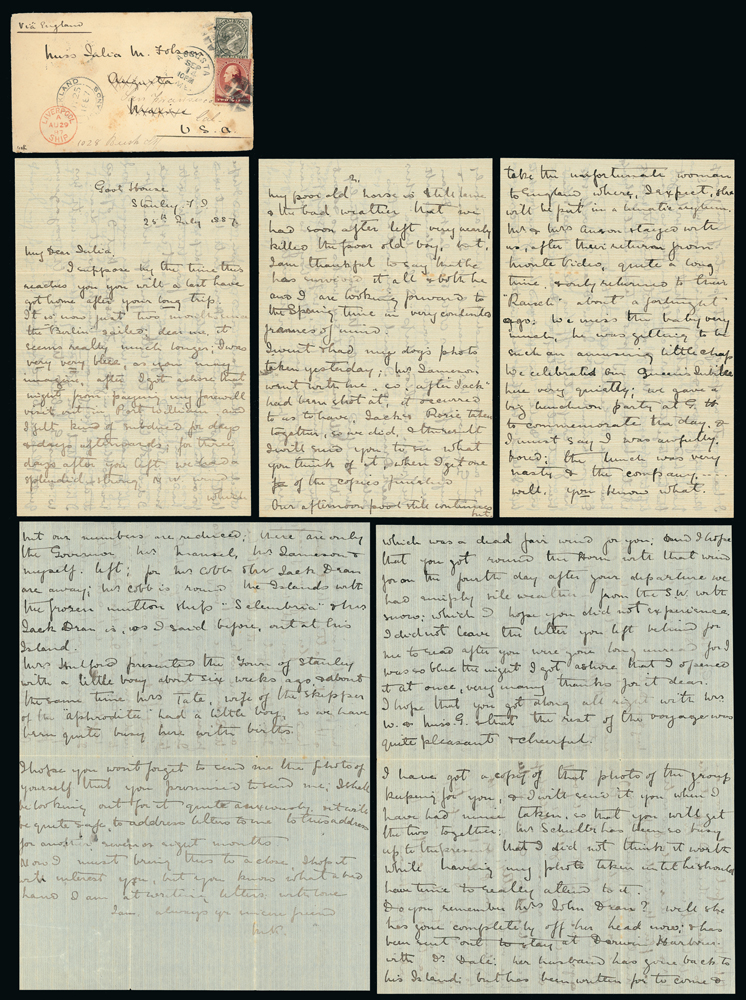 Via England
Miss Julia M. Folsom
Augusta
San Francisco
Maine
Cal.
U.S.A.
1028 Bush St
LIVERPOOL
A
AU 29
87
SHIP
AUGUSTA
SEP
12
Goot House
Stanley, F.I
25th July 1887.
My Dear Julia,
I suppose by the time this
reaches you you will at last have
got home after your long trip.
It is now just two months since
the "Berlin" sailed; dear me, it
seems really much longer; I was
very very blue, as you may
imagine, after I got ashore that
night from paying my farewell
visit out in Port William and
I felt kind of subdued for days
& days afterwards; for three
days after you left we had a
splendid strong N.W. wind
which
2.
my poor old horse is still lame
& the bad weather that we
had soon after left very nearly
killed the poor old boy, but,
I am thankful to say that he
has survived it all & both he
and I are looking forward to
the Spring time in very contented
frames of mind.
I went & had my dog's photo
taken yesterday; Mrs Jameson
went with me, so, after "Jack"
had been shot at, it occurred
to us to have Jack & Rosie taken
together, so we did, & the result
I will send you to see what
you think of it when I get one
of the copies finished
Our afternoon pool still continues
but
take the unfortunate woman
to England where, I expect, she
will be put in a lunatic asylum.
Mr & Mrs Anson stayed with
us, after their return from
Monte Video, quite a long
time, & only returned to their
"Ranch" about a fortnight
ago; We miss the baby very
much, he was getting to be
such an amusing little chap
We celebrated our Queen's Jubilee
here very quietly; we gave a
big luncheon party at G.H
to commemorate the day, &
I must say I was awfully
bored; the lunch was very
nasty & the company, ....
well, you know what.
but our numbers are reduced; there are only
the Governor, Mrs Mansel, Mrs Jameson &
myself left; for Mrs Cobb & Mrs Jack Dean
are away; Mrs Cobb is round the Islands with
the frozen mutton ship "Selembria" & Mrs
Jack Dean is, as I said before, out at his
Island.
Mrs Hulford presented the Town of Stanley
with a little boy about six weeks ago, & about
the same time Mrs Tate, wife of the skipper
of the "Aphrodite" had a little boy, so we have
been quite busy here with births.
I hope you wont forget to send me the photo of
yourself that you promised to send me; I shall
be looking out for it quite anxiously & it will
be quite safe to address letters to me to this address
for another seven or eight months
Now I must bring this to a close. I hope it
will interest you, but you know what a bad
hand I am at writing letters, with love
I am always yr sincere friend
which was a dead fair wind for you; and I hope
that you got round the Horn with that wind
for on the fourth day after your departure we
had simply vile weather from the S.W. with
snow; which I hope you did not experience.
I did not leave the letter you left behind for
me to read after you were gone long unread for I
was so blue the night I got ashore that I opened
it at once, very many thanks for it dear.
I hope that you got along all right with Mrs
W. & Miss G. & that the rest of the voyage was
quite pleasant & cheerful.
I have got a copy of that photo of the group
keeping for you, & I will send it you when I
have had mine taken, so that you will get
the two together; Mr Schulter has been so busy
up to the present that I did not think it worth
while having my photo taken until he should
have time to really attend to it.
Do you remember Mrs John Dean? well she
has gone completely off her head now; & has
been sent out to stay at Darwin Harbour
with Dr Dale; her husband has gone back to
his Island; but has been written for to come &